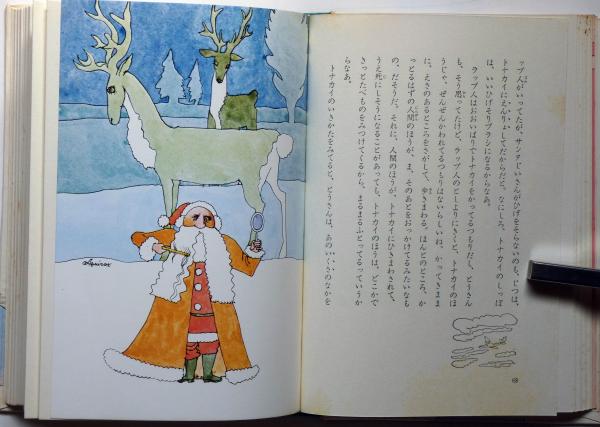 ップ人がいってたが、サンタじいさんがひげをそらないのも、じつは、
トナカイにえんりょしてだからだと。なにしろ、トナカイのしっぽ
は、いいひげそりブラシになるからなあ。
ラップ人はおおいばりでトナカイをかってるつもりだし、とうさん
も、そう思ってたけど、ラップ人のとしよりにきくと、トナカイのほ
うじゃ、ぜんぜんかわれてるつもりはないらしいね。かってきまま
に、えさのあるところをさがして、歩きまわる。ほんとのところ、か
っとるはずの人間のほうが、ま、そのあとをおっかけてるみたいなも
の、だそうだ。それに、人間のほうが、トナカイにひきまわされて、
うえ死にしそうになることがあっても、トナカイのほうは、どこかで
きっとたべものをみつけてくるから、まるまるふとってるっていうか
らなあ。
トナカイのいきかたをみてると、とうさんは、あのいくさのなかを
69